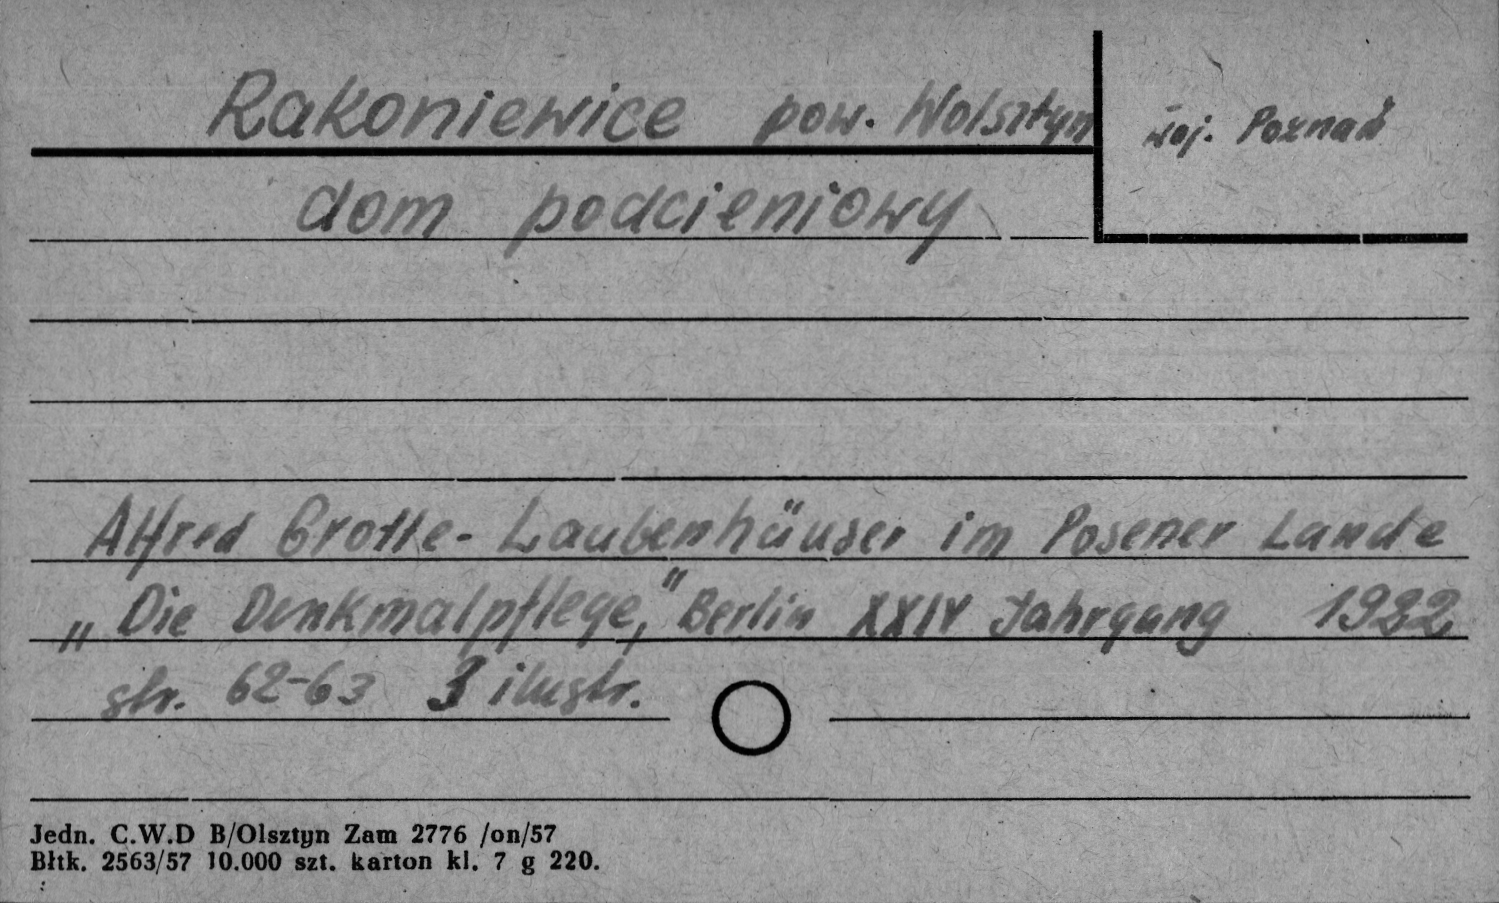 Rakoniewice pow. Wolsztyn
woj. Poznań
dom podcieniowy
Alfred Grotte - Laubenhäuser im Posener Lande
„Die Denkmalpflege," Berlin XXIV Jahrgang 1922
str. 62-63 3 ilustr.
Jedn. C.W.D B/Olsztyn Zam 2776 /on/57
Błtk. 2563/57 10.000 szt. karton kl. 7 g 220.